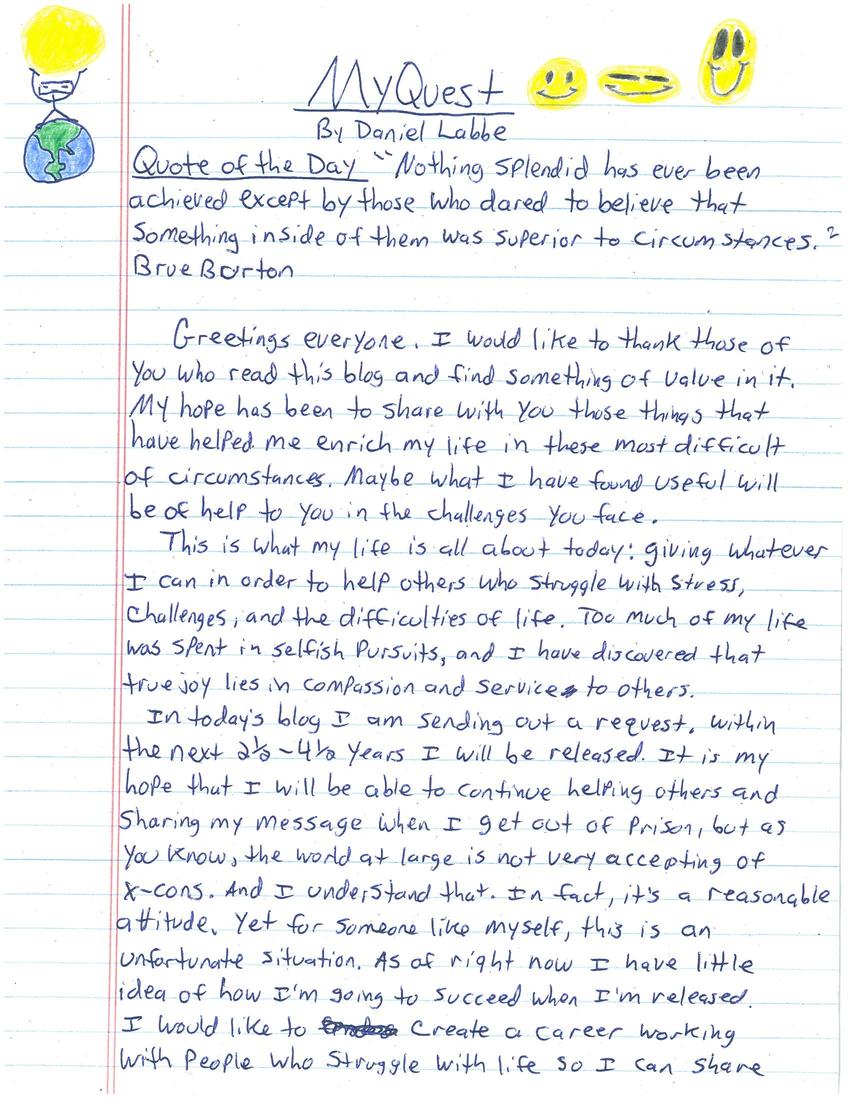 My Quest
By Daniel Labbe
Quote of the Day "Nothing splendid has ever been
achieved except by those who dared to believe that
something inside of them was superior to circumstances."
Brue Barton
Greetings everyone. I would like to thank those of
you who read this blog and find something of value in it.
My hope has been to share with you those things that
have helped me enrich my life in these most difficult
of circumstances. Maybe what I have found useful will
be of help to you in the challenges you face.
This is what my life is all about today: giving whatever
I can in order to help others who struggle with stress,
challenges, and the difficulties of life. Too much of my life
was spent in selfish pursuits, and I have discovered that
true joy lies in compassion and service to others.
In today's blog I am sending out a request. Within
the next 2½-4½ years I will be released. It is my
hope that I will be able to continue helping others and
sharing my message when I get out of prison, but as
you know, the world at large is not very accepting of
x-cons. And I understand that. In fact, it's a reasonable
attitude. Yet for someone like myself, this is an
unfortunate situation. As of right now I have little
idea of how I'm going to succeed when I'm released.
I would like to create a career working
with people who struggle with life so I can share